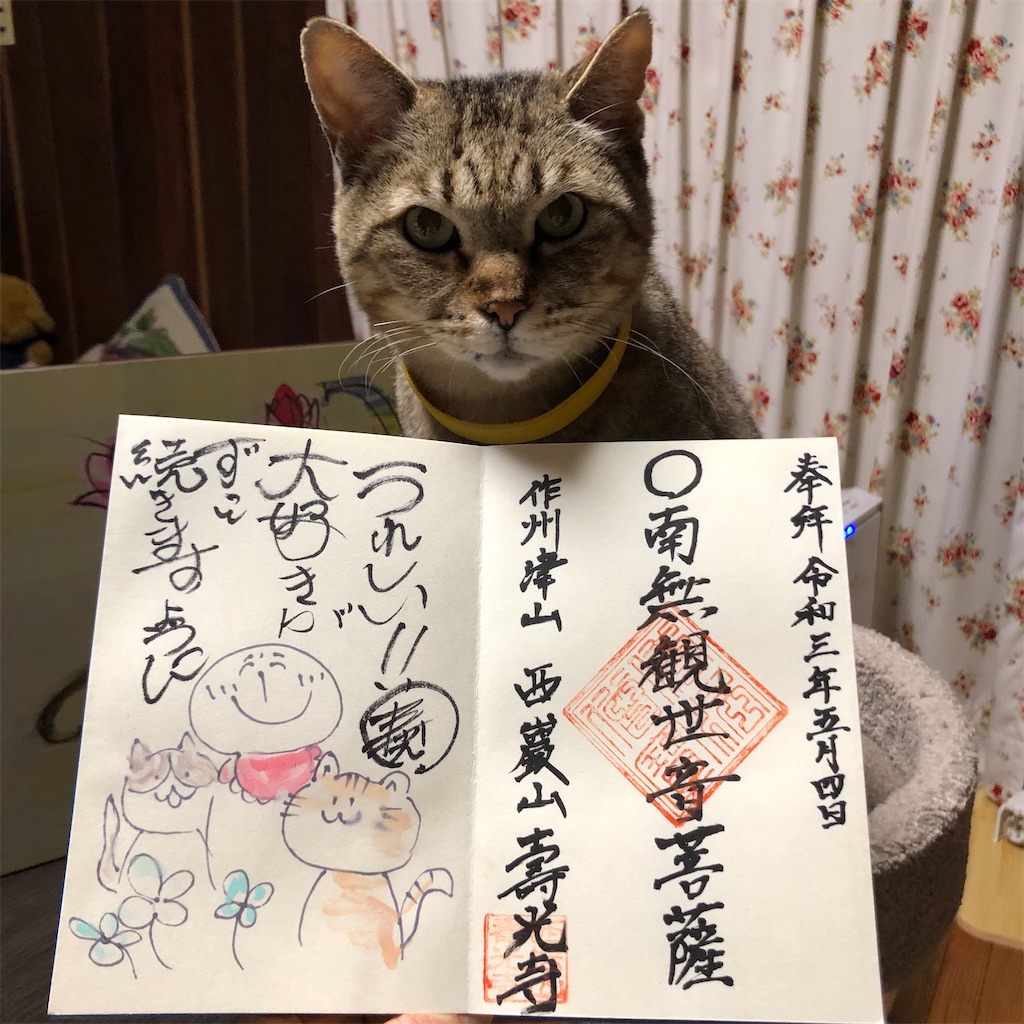 奉拝 令和三年五月四日
〇南無観世音菩薩
作州津山 西巖山 壽光寺
うれしい!!
大好きが
ずっと
続きますように